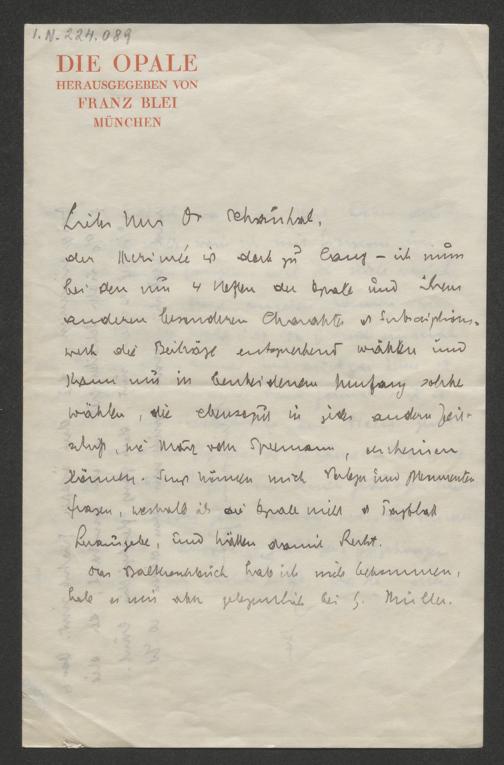 I.N. 224.089
DIE OPALE
HERAUSGEGEBEN VON
FRANZ BLEI
MÜNCHEN
Lieber Herr Dr Schaukal,
der Merimée is doch zu lang – ich muss
bei den nur 4 Heften der Opale und ihrem
anderen besonderen Charakter als Subscriptions-
werk die Beiträge entsprechend wählen und
kann nur in bescheidenem Umfang solche
wählen, die ebensogut in jeder andern Zeit-
schrift, wie März oder Spemann, erscheinen
können. Sonst können mich Verleger und Abonnenten
fragen, weshalb ich die Opale nicht als Tagblatt
herausgebe, und hätten damit Recht.
Das Balkonbuch hab ich nicht bekommen,
hole es mir aber gelegentlich bei G. Müller.